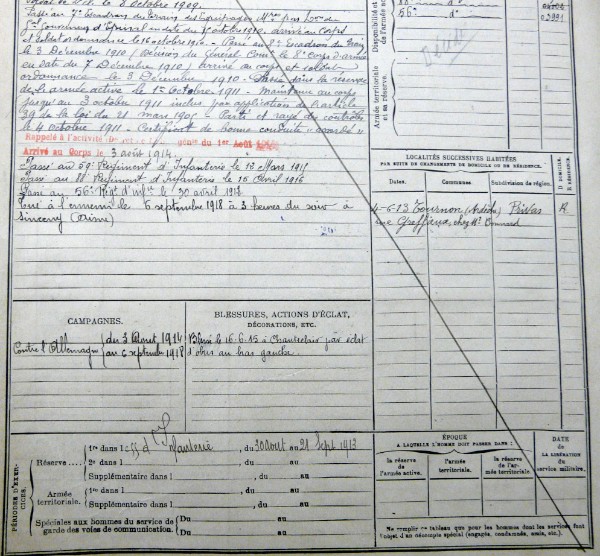 8 Octobre 1909.
Passé au 7e Escadron du Train des Equipages Mres par
en date du 1er octobre 1910, arrivé au Corps
et soldat ordonnance le 16 octobre 1910 - Passé au 8e Escadron du Train
le 3 Décembre 1910 (décision du Général Comt le 8e Corps d'armée
en date du 7 Décembre 1910) arrivé au corps et soldat
ordonnance le 3 Décembre 1910 - Passé dans la réserve
de l'armée active le 1er Octobre 1911 - Maintenu au corps
jusqu'au 3 octobre 1911 inclus par application de l'article
39 de la loi du 21 mars 1905 - Parti et rayé des contrôles
le 4 octobre 1911 - Certificat de bonne conduite « accordé »
Rappelé à l'activité du 1er Août
Arrivé au Corps le 3 août 1914
Passé au 59e Régiment d'Infanterie le 13 Mars 1915
Passé au Régiment d'Infanterie le 16 Avril 1916
Passé au 56e Rgt d'Inf le 30 avril
Tué à l'ennemi le 6 septembre 1918 à 3 heures du soir à
Sinceny (Aisne)
Disponibilité et
de l'armée
56e d°
Décédé
Armée territoriale
et sa réserve.
LOCALITÉS SUCCESSIVES HABITÉES
PAR SUITE DE CHANGEMENTS DE DOMICILE OU DE RÉSIDENCE.
Dates.
Communes.
Subdivision de région.
D. DOMICILE.
R. RÉSIDENCE.
4-6-13 Tournon (Ardèche) Privas R.
rue Greffieux, chez Mr
CAMPAGNES.
Contre l'Allemagne { du 3 Août 1914
au 6 septembre 1918
BLESSURES, ACTIONS D'ÉCLAT,
DÉCORATIONS, ETC.
Blessé le 16.6.15 à Chanteclair par éclat
d'obus au bras gauche.
PÉRIODES D'EXERCICES.
Réserve
1re dans l d'Infanterie, du 30 août au 21 Sept 1913
2e dans l , du au
Supplémentaire dans l , du au
Armée
territoriale.
1re dans l , du au
Supplémentaire dans l , du au
Spéciales aux hommes du service de
garde des voies de communication.
Du au
Du au
ÉPOQUE
A LAQUELLE L'HOMME DOIT PASSER DANS :
la réserve
de l'armée active.
l'armée
territoriale.
la réserve de l'armée
territoriale
DATE
de
LA LIBÉRATION
du
service militaire.
Ne remplir ce tableau que pour les hommes dont les services font
l'objet d'un décompte spécial (engagés, condamnés, omis, etc.).